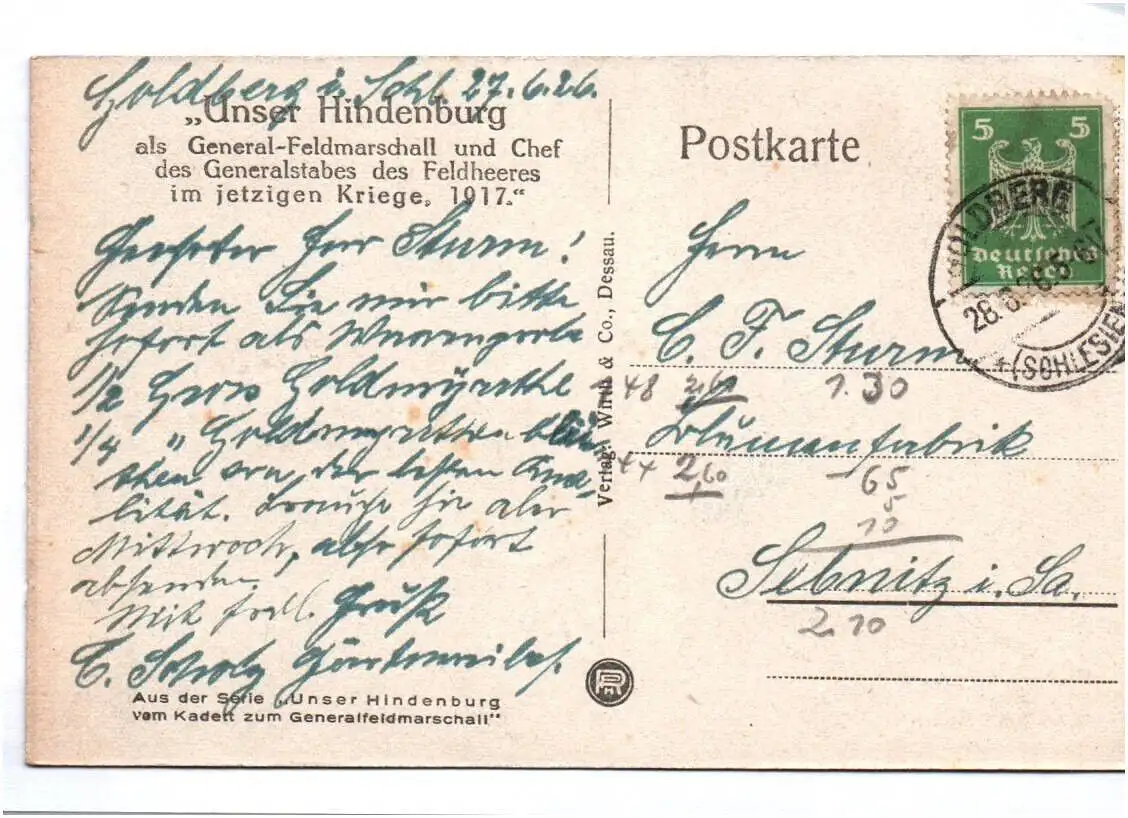 Goldberg i. Schl. 27.6.26.
„Unser Hindenburg
als General-Feldmarschall und Chef
des Generalstabes des Feldheeres
im jetzigen Kriege, 1917.“
Geehrter Herr Sturm!
Senden Sie mir bitte
sofort als Warenprobe
1/2 Gros Goldmyrthe
1/4 " Goldmyrthen
von der besten Qua-
lität. Brauche sie aber
Mittwoch, also sofort
absenden.
Mit frdl. Gruß
E. Scholz
Aus der Serie „Unser Hindenburg
vom Kadett zum Generalfeldmarschall“
Verlag: Wirth & Co., Dessau.
Postkarte
5 5
Deutsches
Reich
GOLDBERG
28.6.26.5-6
(SCHLESIEN)
Herrn
C. F. Sturm
48 2,60 1.30
Blumenfabrik
44 2,60
65
5
10
Sebnitz i. Sa.
2.10